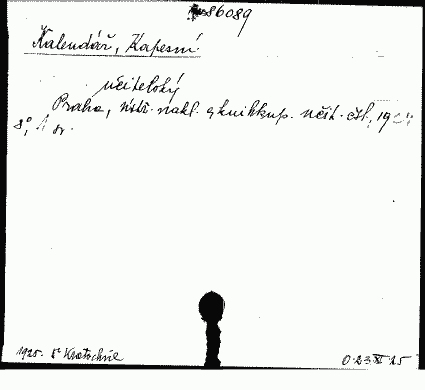 86089
Kalendář, Kapesní
učitelský
Praha, Ústř. nakl. a knihkup. učit. čsl., 19
8°, 1 sv.
1925. Kratochvíl
0.23.XI.25